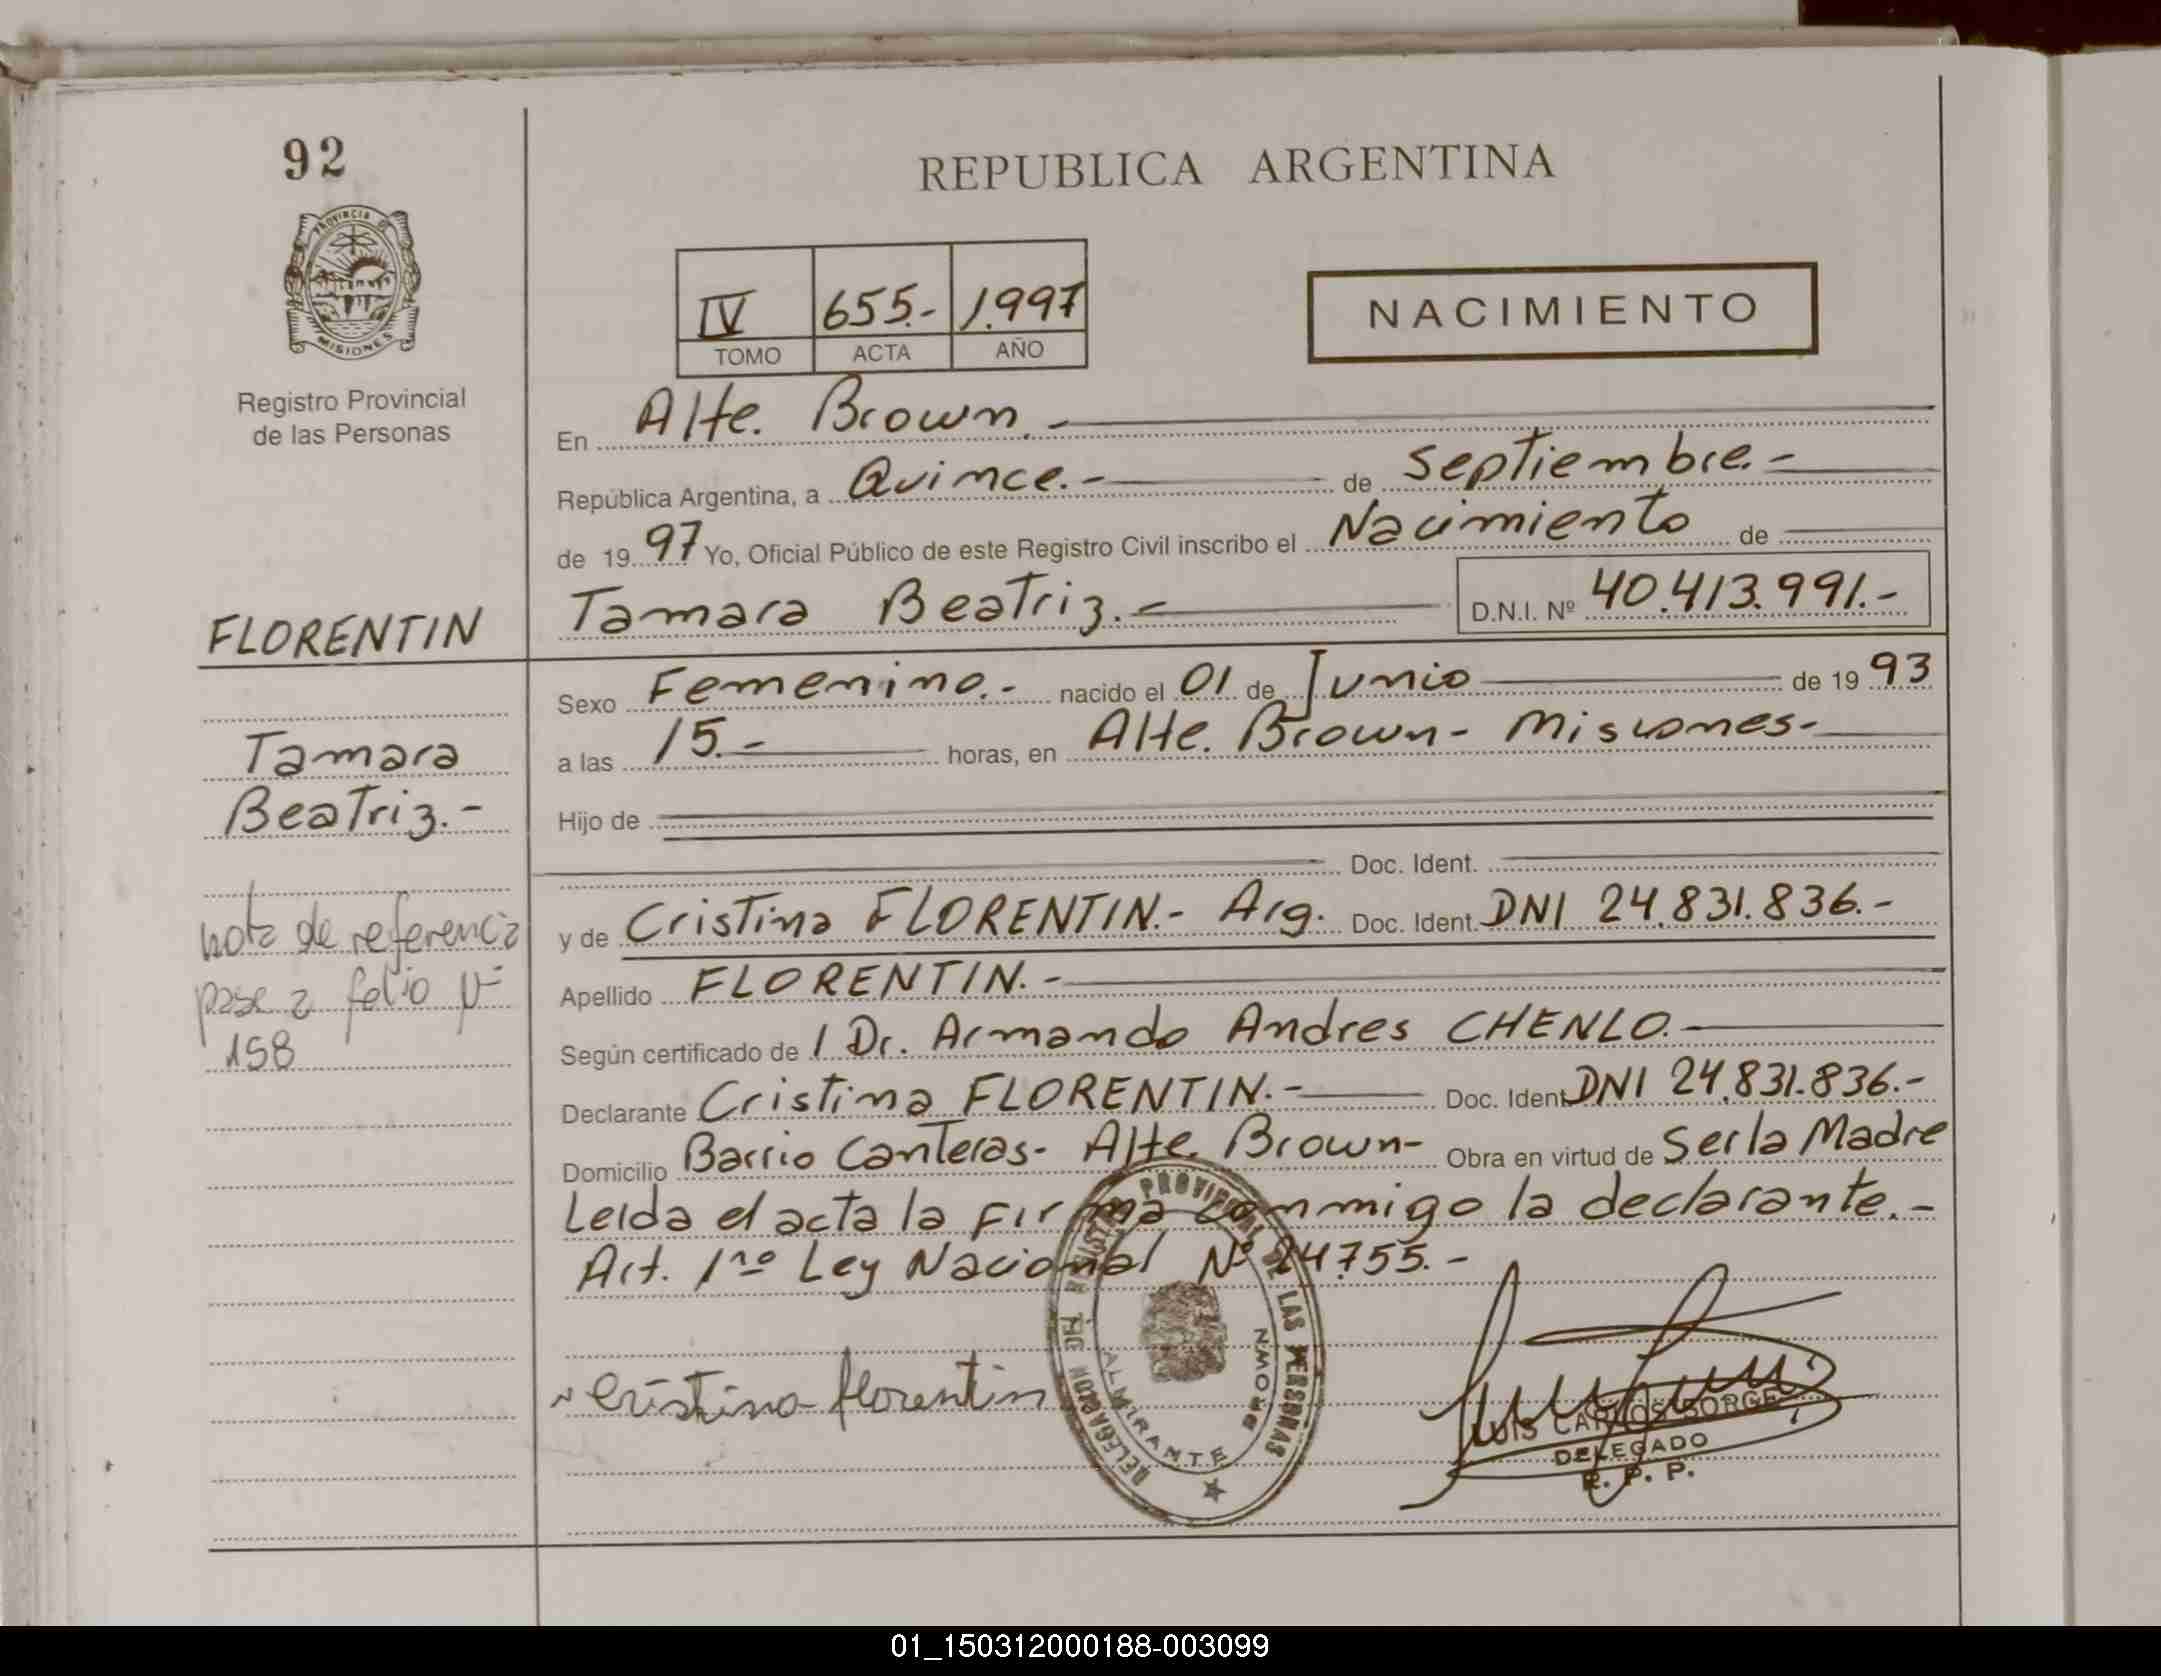 92
REPUBLICA ARGENTINA
PROVINCIA DE
MISIONES
Registro Provincial
de las Personas
IV 655.- 1.997
TOMO ACTA AÑO
NACIMIENTO
En Alte. Brown.-
República Argentina, a Quince.- de Septiembre.-
de 19 97 Yo, Oficial Público de este Registro Civil inscribo el Nacimiento de
Tamara Beatriz.- D.N.I. Nº 40.413.991.-
FLORENTIN
Tamara
Beatriz.-
nota de referencia
pase a folio Nº
158
Sexo Femenino.- nacido el 01 de Junio de 19 93
a las 15.- horas, en Alte. Brown- Misiones-
Hijo de
Doc. Ident.
y de Cristina FLORENTIN.- Arg. Doc. Ident. DNI 24.831.836.-
Apellido FLORENTIN.-
Según certificado de l Dr. Armando Andres CHENLO.-
Declarante Cristina FLORENTIN.- Doc. Ident DNI 24.831.836.-
Domicilio Barrio Canteras- Alte. Brown- Obra en virtud de Ser la Madre
Leida el acta la firma conmigo la declarante.-
Art. 1ro Ley Nacional Nº 24.755.-
Cristina florentin
DELEGACION DEL REGISTRO PROVINCIAL DE LAS PERSONAS
ALMIRANTE BROWN
LUIS CARLOS BORGE
DELEGADO
R. P. P.
01_150312000188-003099